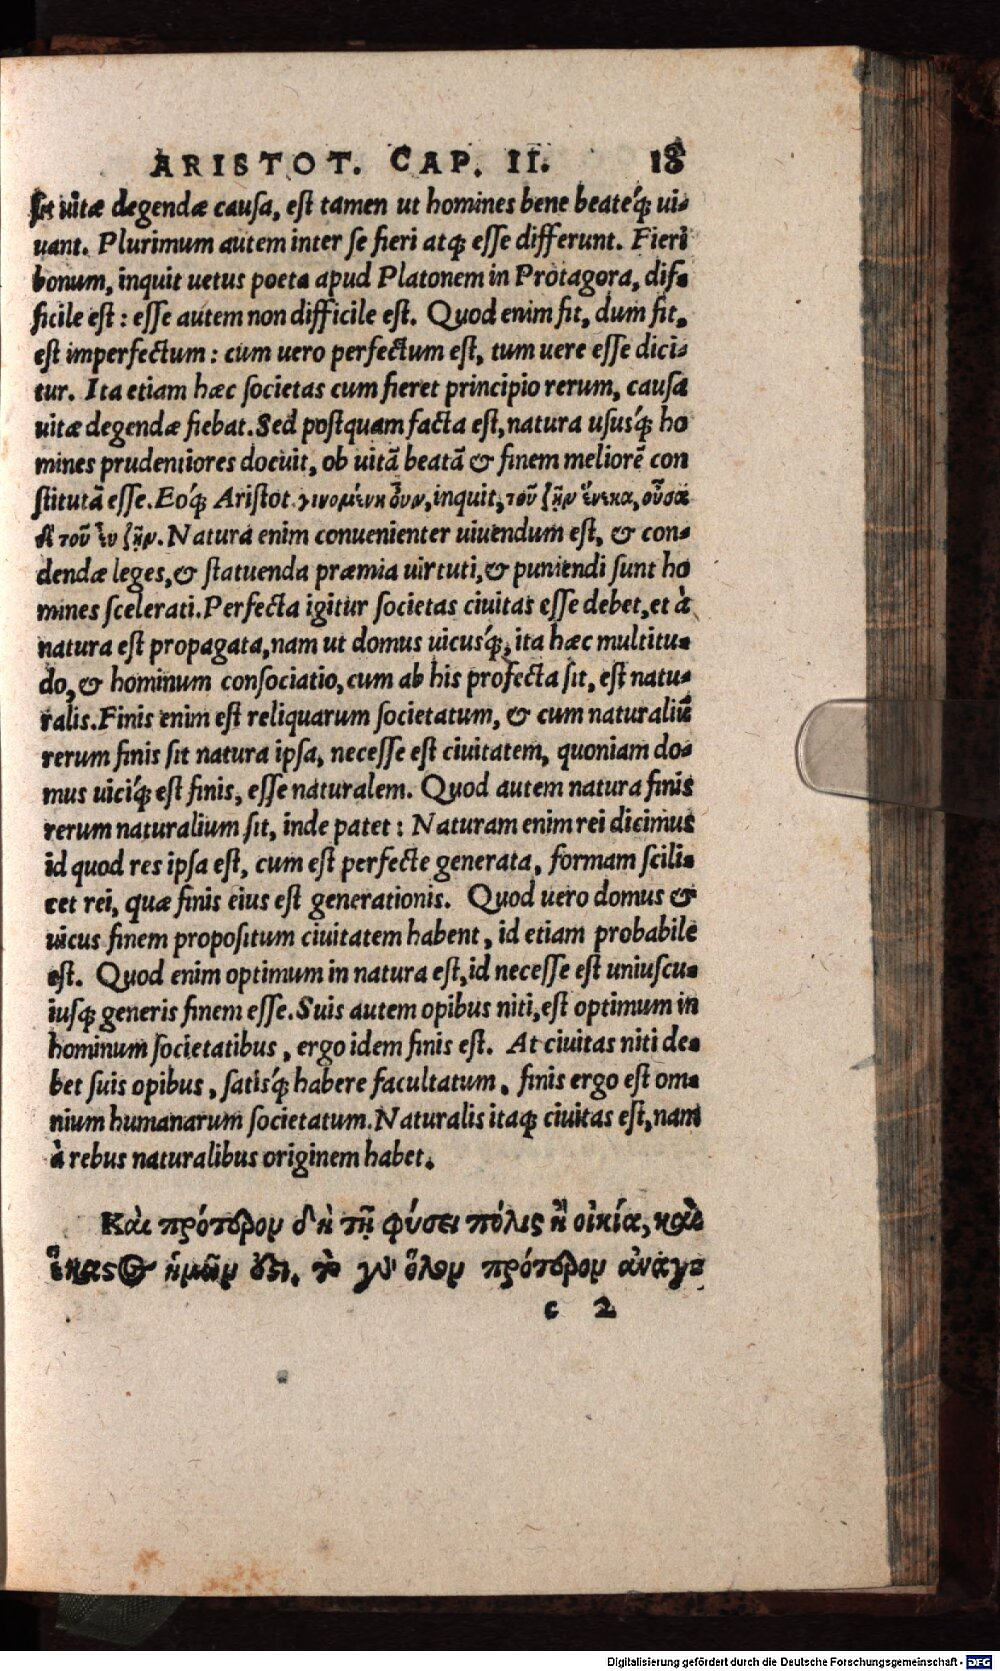 ARISTOT. CAP. II. 18
sit uitæ degendæ causa, est tamen ut homines bene beateq́; ui-
uant. Plurimum autem inter se fieri atq; esse differunt. Fieri
bonum, inquit uetus poeta apud Platonem in Protagora, dif-
ficile est: esse autem non difficile est. Quod enim fit, dum fit,
est imperfectum: cum uero perfectum est, tum uere esse dici-
tur. Ita etiam hæc societas cum fieret principio rerum, causa
uitæ degendæ fiebat. Sed postquam facta est, natura ususq́; ho
mines prudentiores docuit, ob uitã beatã & finem meliorẽ con
stitutã esse. Eoq́; Aristot. γινομένη οὖν, inquit, τοῦ ζῆν ἕνεκα, οὖσα
δὲ τοῦ εὖ ζῆν. Natura enim conuenienter uiuendum est, & con-
dendæ leges, & statuenda præmia uirtuti, & puniendi sunt ho
mines scelerati. Perfecta igitur societas ciuitas esse debet, et à
natura est propagata, nam ut domus uicusq́;, ita hæc multitu-
do, & hominum consociatio, cum ab his profecta sit, est natu-
ralis. Finis enim est reliquarum societatum, & cum naturaliũ
rerum finis sit natura ipsa, necesse est ciuitatem, quoniam do-
mus uiciq́; est finis, esse naturalem. Quod autem natura finis
rerum naturalium sit, inde patet: Naturam enim rei dicimus
id quod res ipsa est, cum est perfecte generata, formam scili-
cet rei, quæ finis eius est generationis. Quod uero domus &
uicus finem propositum ciuitatem habent, id etiam probabile
est. Quod enim optimum in natura est, id necesse est uniuscu-
iusq; generis finem esse. Suis autem opibus niti, est optimum in
hominum societatibus, ergo idem finis est. At ciuitas niti de-
bet suis opibus, satisq́; habere facultatum, finis ergo est om-
nium humanarum societatum. Naturalis itaq; ciuitas est, nam
à rebus naturalibus originem habet.
Καὶ πρότερον δὴ τῇ φύσει πόλις ἢ οἰκία, καὶ
ἕκαστος ἡμῶν ὅτι, τὸ γὰρ ὅλον πρότερον ἀναγ-
c 2
Digitalisierung gefördert durch die Deutsche Forschungsgemeinschaft - DFG